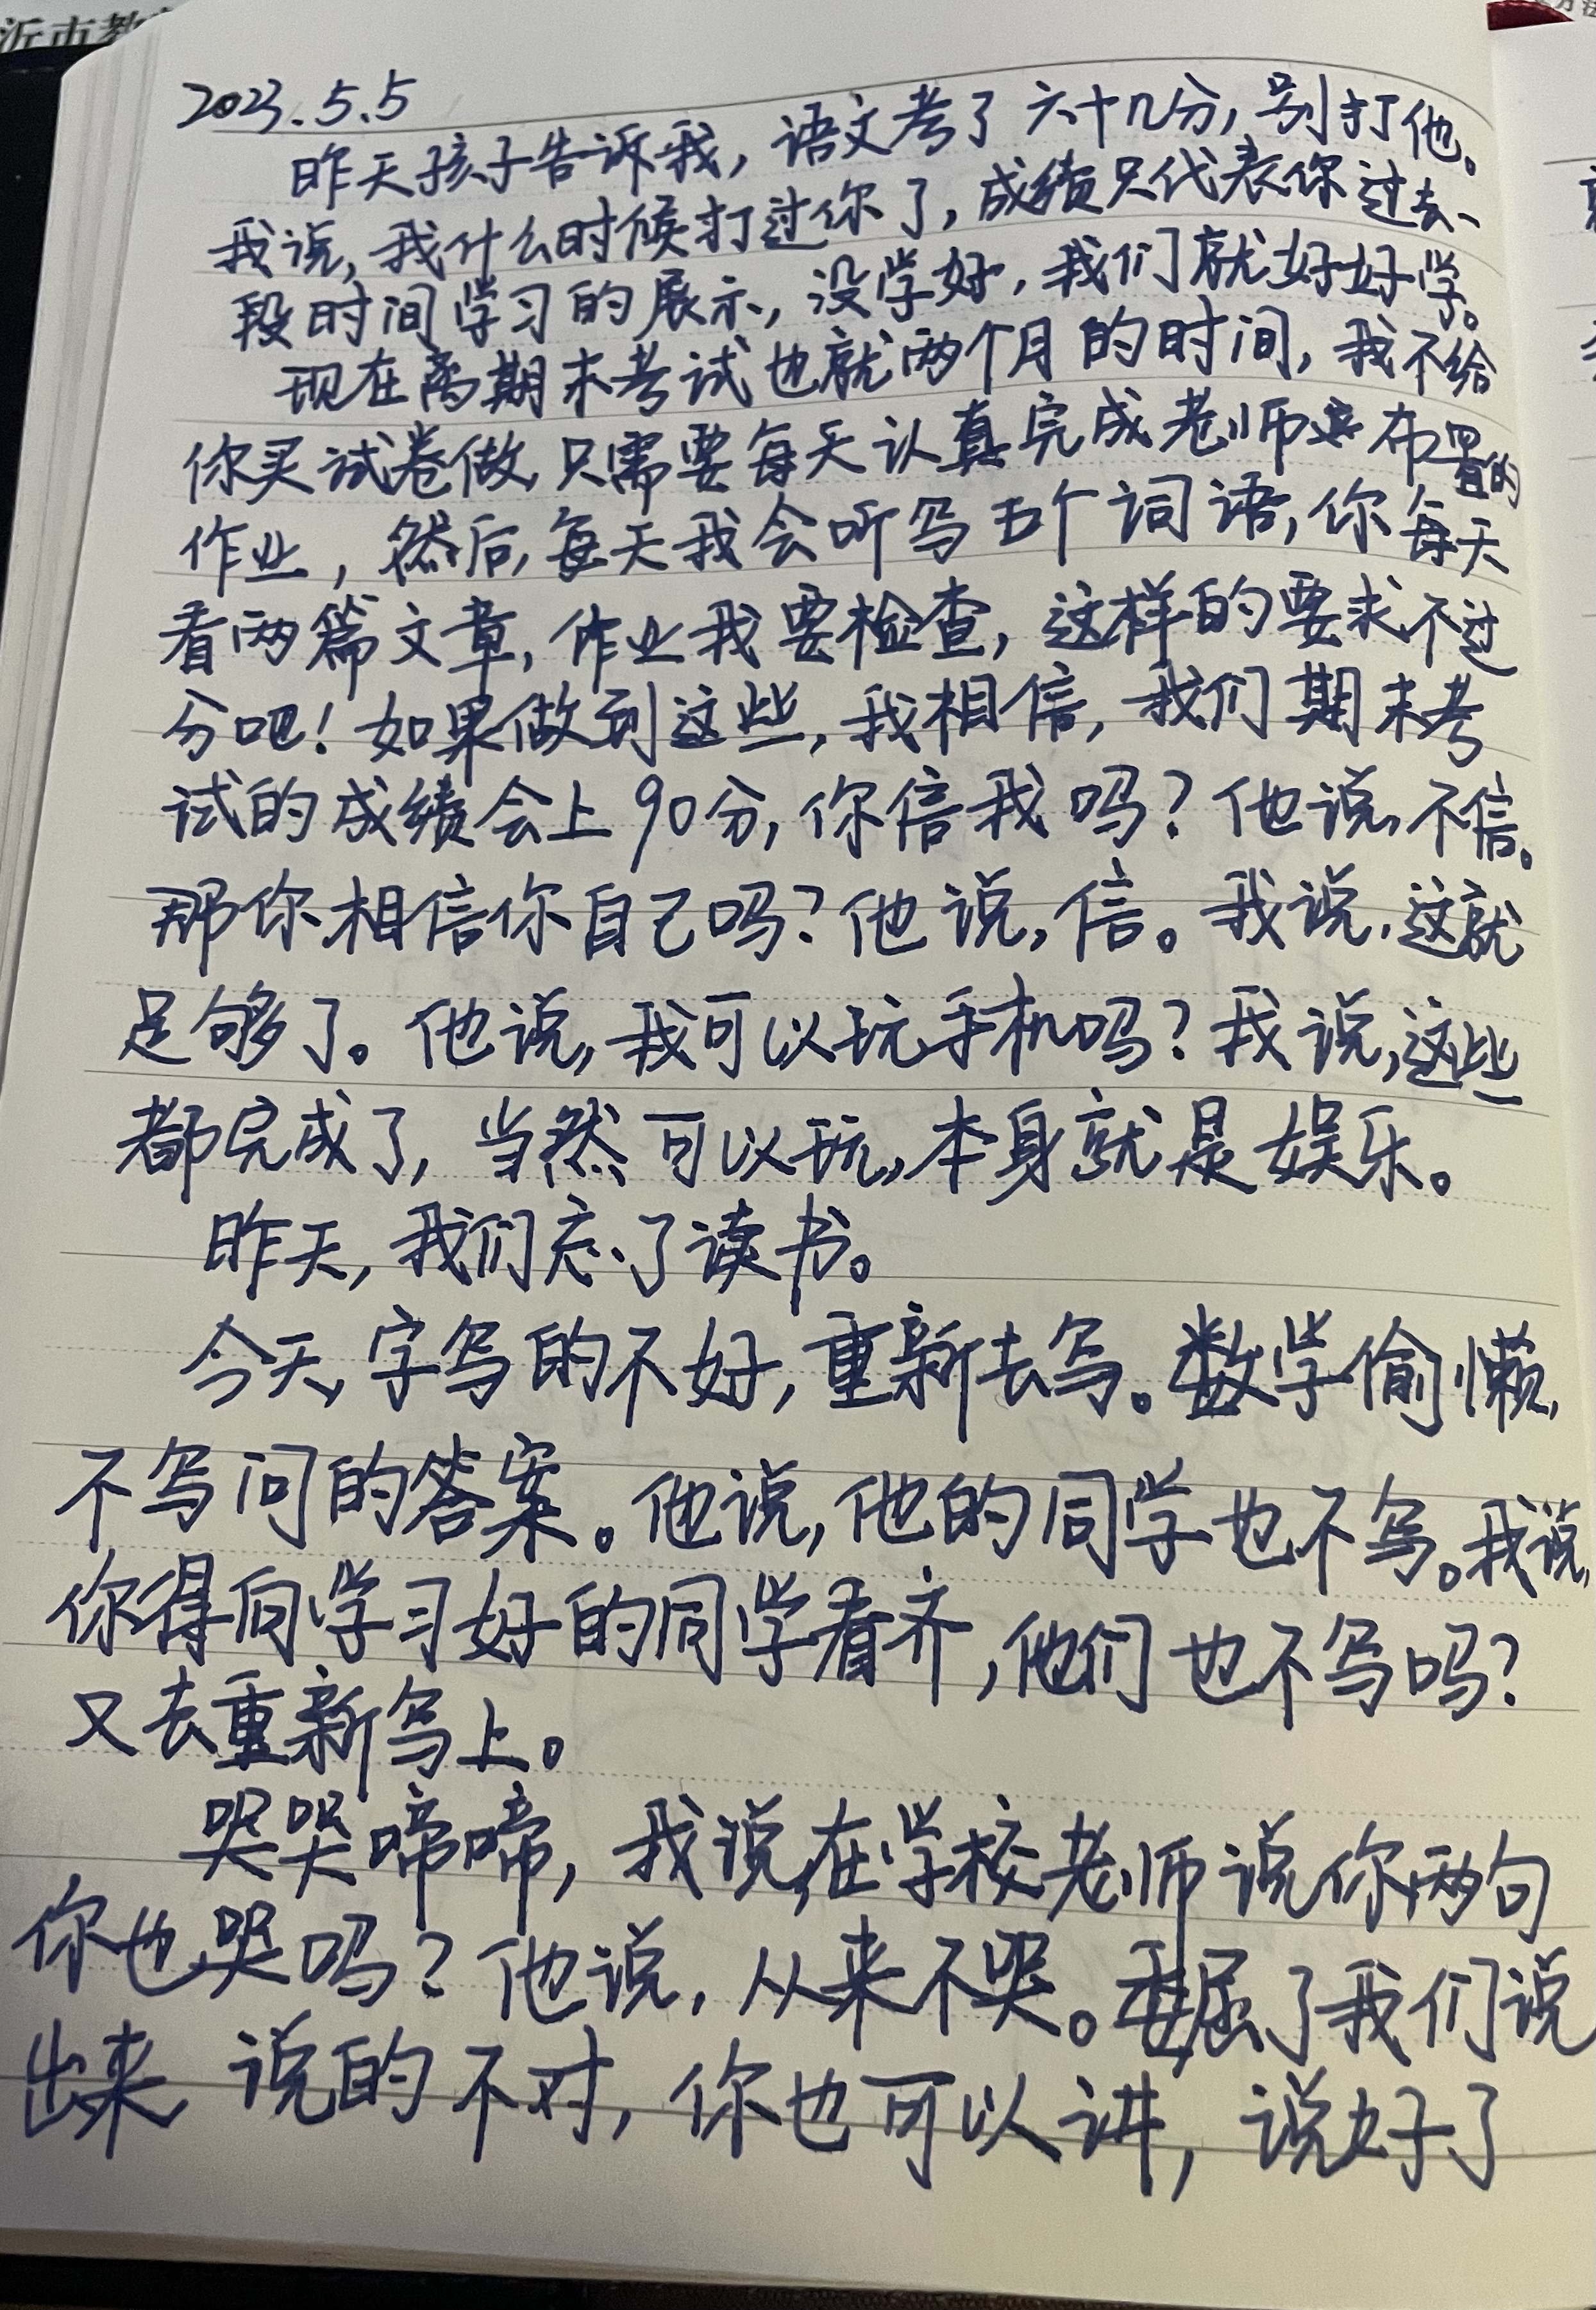 沂市教
2023.5.5
昨天孩子告诉我，语文考了六十几分，别打他。
我说，我什么时候打过你了，成绩只代表你过去、
段时间学习的展示，没学好，我们就好好学。
现在离期末考试也就两个月的时间，我不给
你买试卷做，只需要每天认真完成老师布置的
作业，然后，每天我会听写五个词语，你每天
看两篇文章，作业我要检查，这样的要求不过
分吧！如果做到这些，我相信，我们期末考
试的成绩会上90分，你信我吗？他说，不信。
那你相信你自己吗？他说，信。我说，这就
足够了。他说，我可以玩手机吗？我说，这些
都完成了，当然可以玩，本身就是娱乐。
昨天，我们忘了读书。
今天，字写的不好，重新去写。数学偷懒，
不写问的答案。他说，他的同学也不写。我说，
你得向学习好的同学看齐，他们也不写吗？
又去重新写上。
哭哭啼啼，我说，在学校老师说你两句
你也哭吗？他说，从来不哭。委屈了我们说
出来，说的不对，你也可以讲，说好了